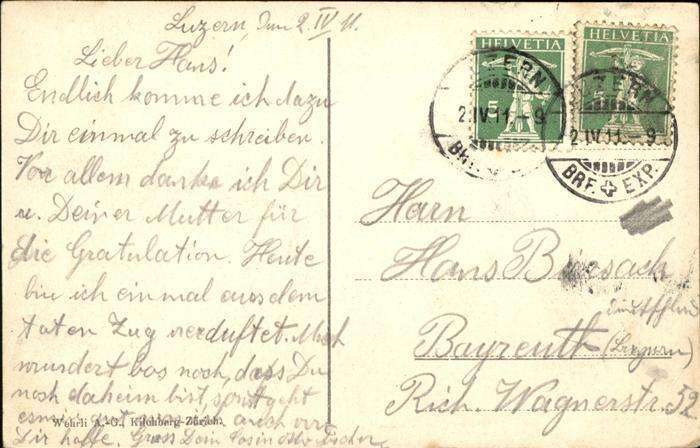 Luzern, den 2. IV 11.
Lieber Hans!
Endlich komme ich dazu
Dir einmal zu schreiben.
Vor allem danke ich Dir
u. Deiner Mutter für
die Gratulation. Heute
bin ich einmal aus dem
Zug verduftet. Mich
wundert bos noch, dass Du
noch daheim bist, sonst geht
es mir gut auch von
Dir hoffe. Gruss Dein
Wehrli A.-G., Kilchberg-Zürich.
HELVETIA
5
HELVETIA
5
LUZERN
2.IV.11.-9
BRF. EXP.
LUZERN
2.IV.11.-9
BRF. EXP.
Harn
Hans Büsack
Bayreuth (Bayern)
Rich. Wagnerstr. 52